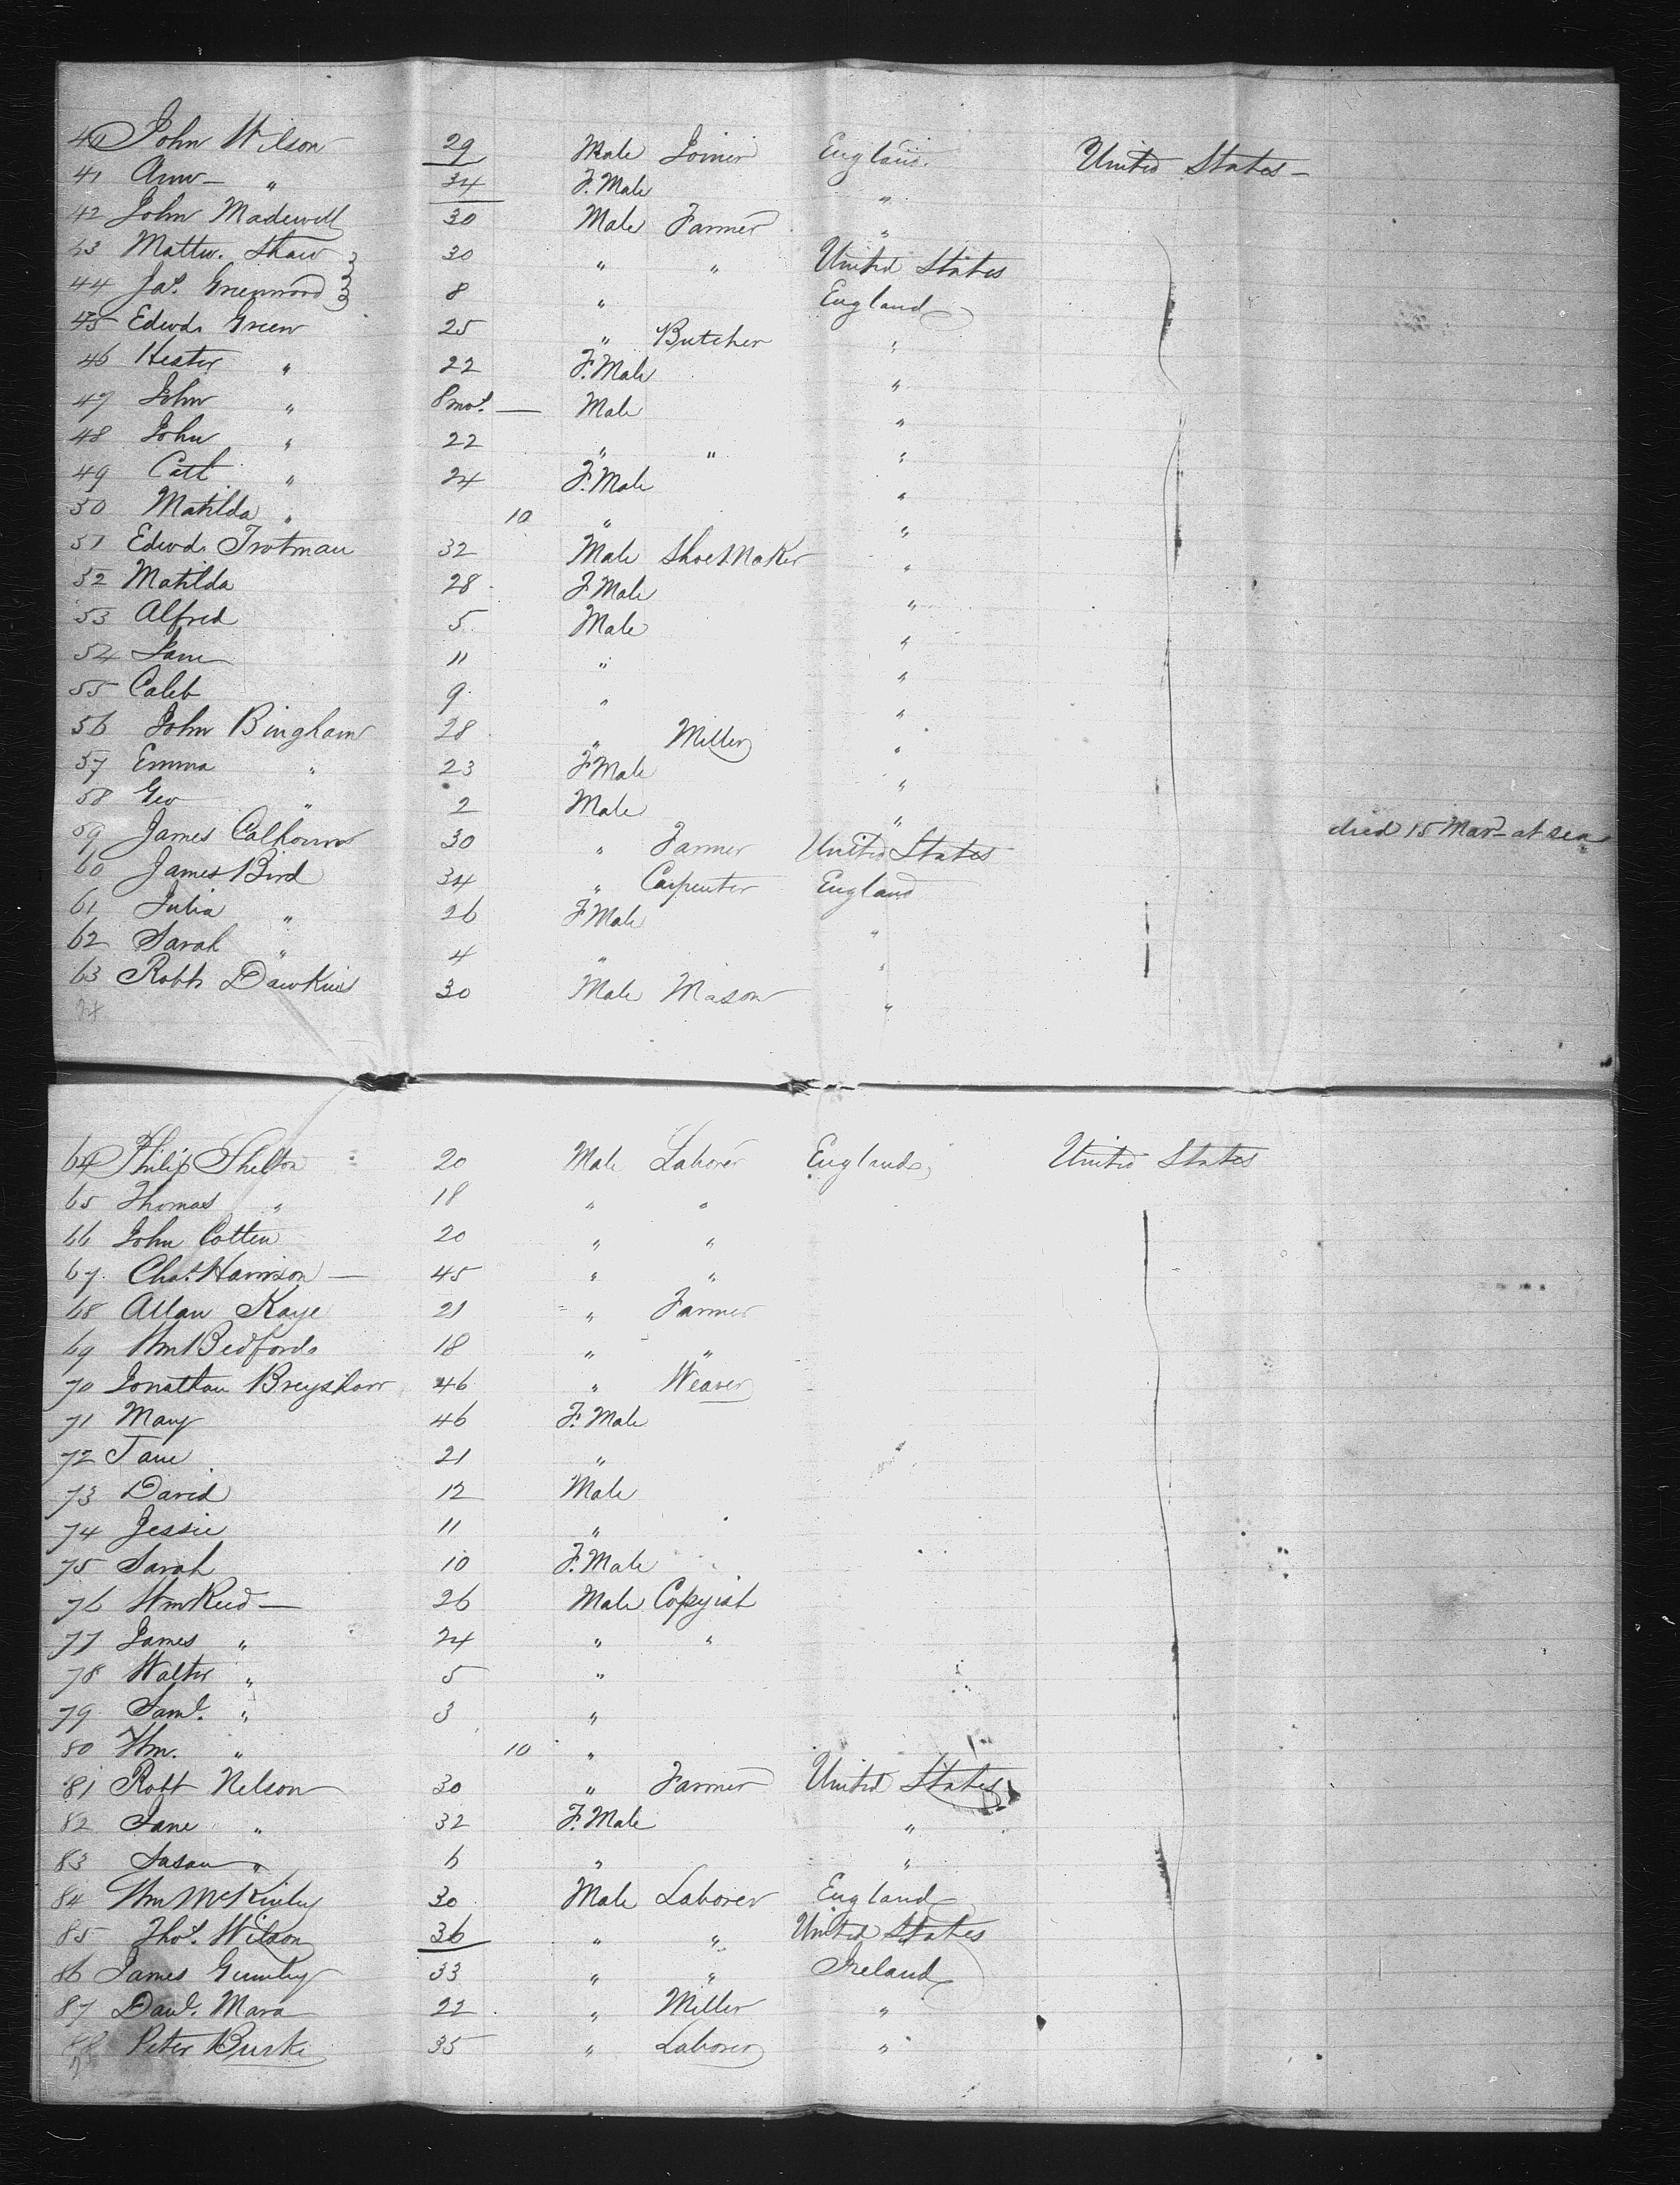 40 John Wilson 29 Male Joiner England United States –
41 Ann – " 34 F. Male "
42 John Madewell 30 Male Farmer "
43 Mattw. Shaw 30 " " United States
44 Jas. Greenwood 8 " England
45 Edwd. Green 25 " Butcher "
46 Hester " 22 F. Male "
47 John " 8 mos. — Male "
48 John " 22 " " "
49 Cath " 24 F. Male "
50 Matilda " 10 " "
51 Edwd. Trotman 32 Male Shoe Maker "
52 Matilda 28 F Male "
53 Alfred 5 Male "
54 Jane 11 " "
55 Caleb 9 " "
56 John Bingham 28 " Miller "
57 Emma " 23 F Male "
58 Geo " 2 Male "
59 James Calhoun 30 " Farmer United States died 15 Mar – at sea
60 James Bird 34 " Carpenter England
61 Julia " 26 F Male "
62 Sarah " 4 " "
63 Robt. Dawkins 30 Male Mason "
64 Philip Shelton 20 Male Laborer England United States
65 Thomas " 18 " "
66 John Cotten 20 " "
67. Chas. Harrison — 45 " "
68 Allan Kaye 21 " Farmer
69 Wm Bedford 18 " "
70 Jonathan Breyshaw 46 " Weaver
71 Mary 46 F. Male
72 Jane 21 "
73 David 12 Male
74 Jessie 11 "
75 Sarah 10 F. Male
76 Wm Reed — 26 Male Copyist
77 James " 24 " "
78 Walter " 5 "
79 Saml. " 3 "
80 Wm. " 10 "
81 Robt Nelson 30 " Farmer United States
82 Jane " 32 F. Male "
83 Susan " 6 " "
84 Wm McKinley 30 Male Laborer England
85 Thos. Wilson 36 " " United States
86 James Gumley 33 " " Ireland
87 Danl. Mara 22 " Miller "
88 Peter Burke 35 " Laborer "